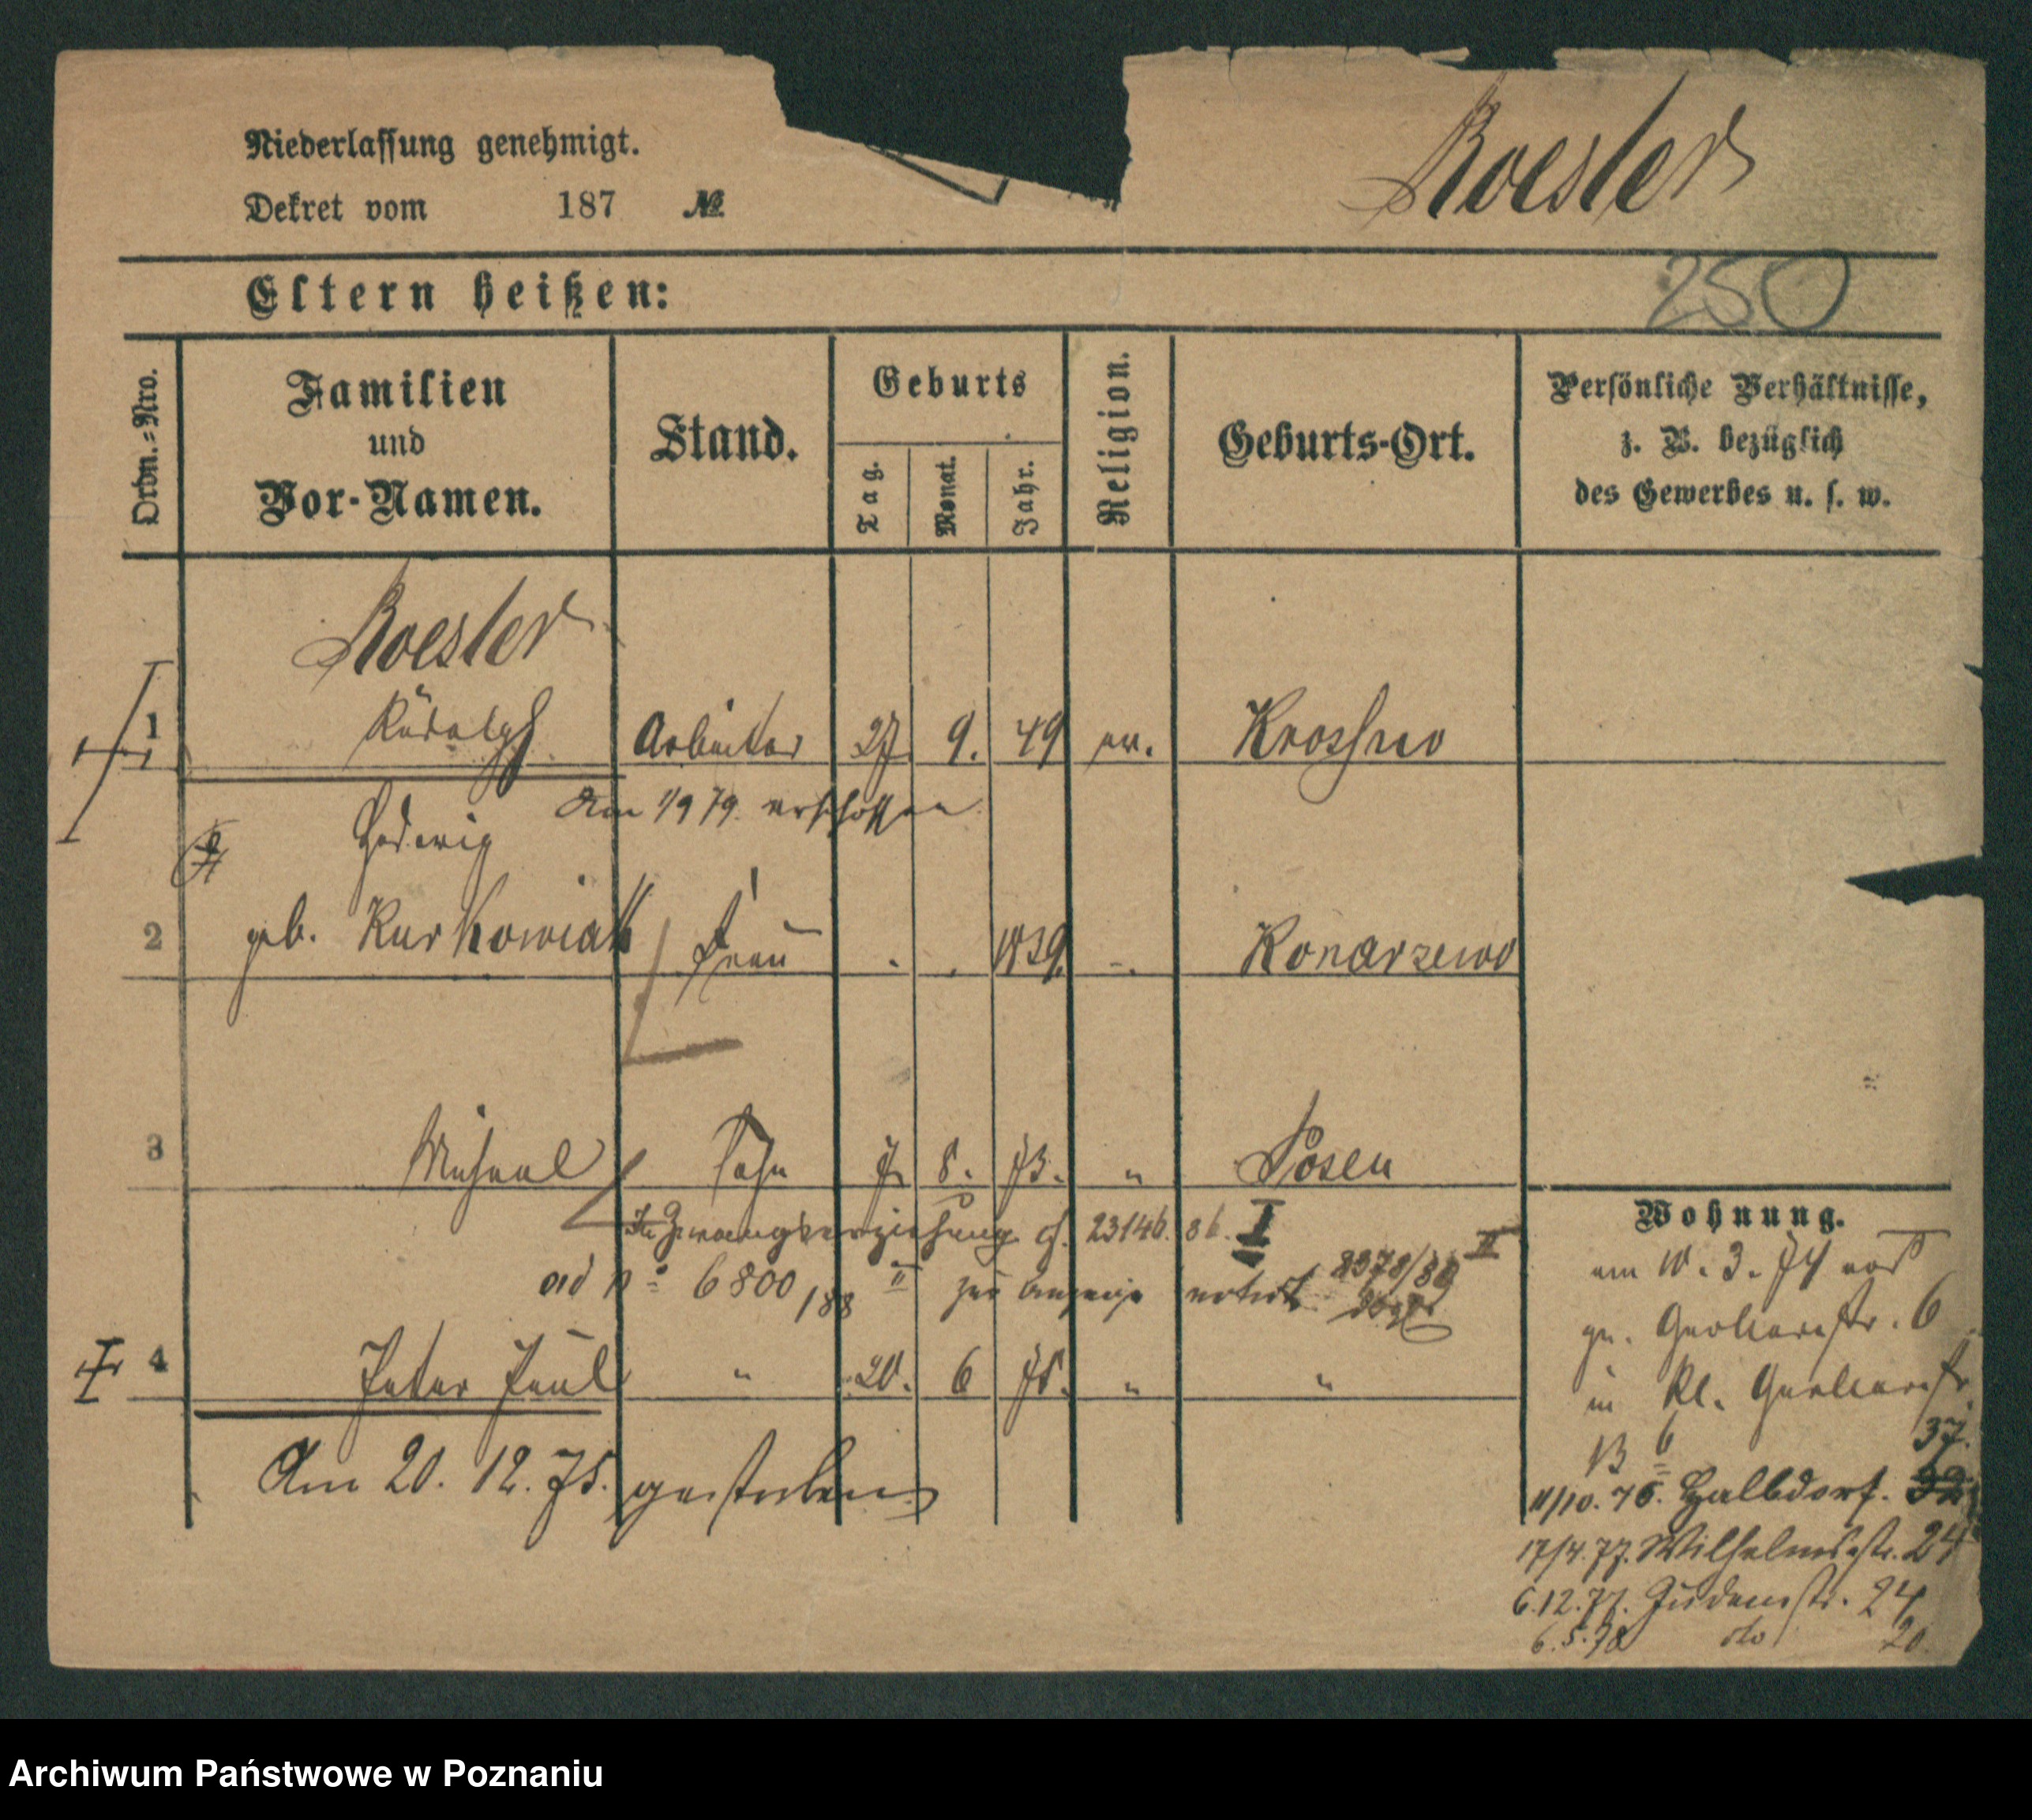 Niederlassung genehmigt.
Roesler
Dekret vom 187 №
Eltern heißen:
250
Ordn.=Nro.
Familien
und
Vor-Namen.
Stand.
Geburts
Tag.
Monat.
Jahr.
Religion.
Geburts-Ort.
Persönliche Verhältnisse,
z. B. bezüglich
des Gewerbes u. s. w.
Roesler
1 Rudolph Arbeiter 27 9. 49 ev. Kroshno
Am 1/9 79. erschossen
Hedwig
2 geb. Kurkowiak Frau 1839. Konarzewo
3 Michael Sohn 7 8. 73. " Posen
In Zwangserziehung cf. 23146. 86. I
ad no 6800/88 II zur Anzeige notirt 8378/89 II
4 Peter Paul " 20. 6 75. " "
Am 20. 12. 75. gestorben
Wohnung.
am 10. 3. 74 von
gr. Gerberstr. 6
in Kl. Gerberstr.
11/10. 76. Halbdorf. 37.
17/4. 77. Wilhelmsstr. 24
6.12.77. Judenstr. 24
6.5.78 dto 20
Archiwum Państwowe w Poznaniu